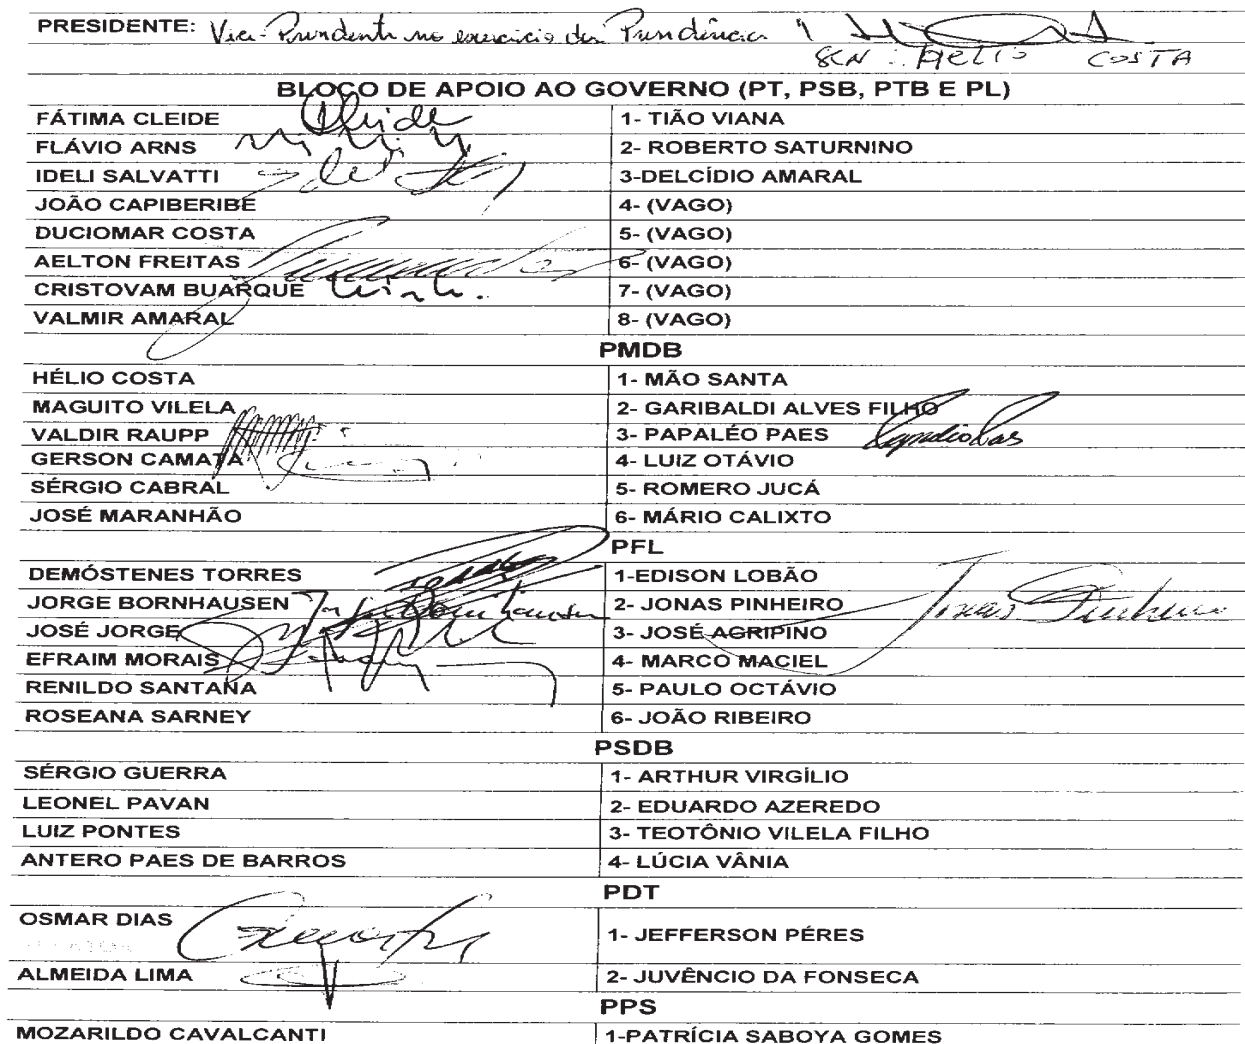 PRESIDENTE: Vice-Presidente no exercício da Presidência
SEN. HELIO COSTA
BLOCO DE APOIO AO GOVERNO (PT, PSB, PTB E PL)
FÁTIMA CLEIDE 1- TIÃO VIANA
FLÁVIO ARNS 2- ROBERTO SATURNINO
IDELI SALVATTI 3-DELCÍDIO AMARAL
JOÃO CAPIBERIBE 4- (VAGO)
DUCIOMAR COSTA 5- (VAGO)
AELTON FREITAS 6- (VAGO)
CRISTOVAM BUARQUE 7- (VAGO)
VALMIR AMARAL 8- (VAGO)
PMDB
HÉLIO COSTA 1- MÃO SANTA
MAGUITO VILELA 2- GARIBALDI ALVES FILHO
VALDIR RAUPP 3- PAPALÉO PAES
GERSON CAMATA 4- LUIZ OTÁVIO
SÉRGIO CABRAL 5- ROMERO JUCÁ
JOSÉ MARANHÃO 6- MÁRIO CALIXTO
PFL
DEMÓSTENES TORRES 1-EDISON LOBÃO
JORGE BORNHAUSEN Jorge Bornhausen 2- JONAS PINHEIRO Jonas Pinheiro
JOSÉ JORGE 3- JOSÉ AGRIPINO
EFRAIM MORAIS 4- MARCO MACIEL
RENILDO SANTANA 5- PAULO OCTÁVIO
ROSEANA SARNEY 6- JOÃO RIBEIRO
PSDB
SÉRGIO GUERRA 1- ARTHUR VIRGÍLIO
LEONEL PAVAN 2- EDUARDO AZEREDO
LUIZ PONTES 3- TEOTÔNIO VILELA FILHO
ANTERO PAES DE BARROS 4- LÚCIA VÂNIA
PDT
OSMAR DIAS 1- JEFFERSON PÉRES
ALMEIDA LIMA 2- JUVÊNCIO DA FONSECA
PPS
MOZARILDO CAVALCANTI 1-PATRÍCIA SABOYA GOMES